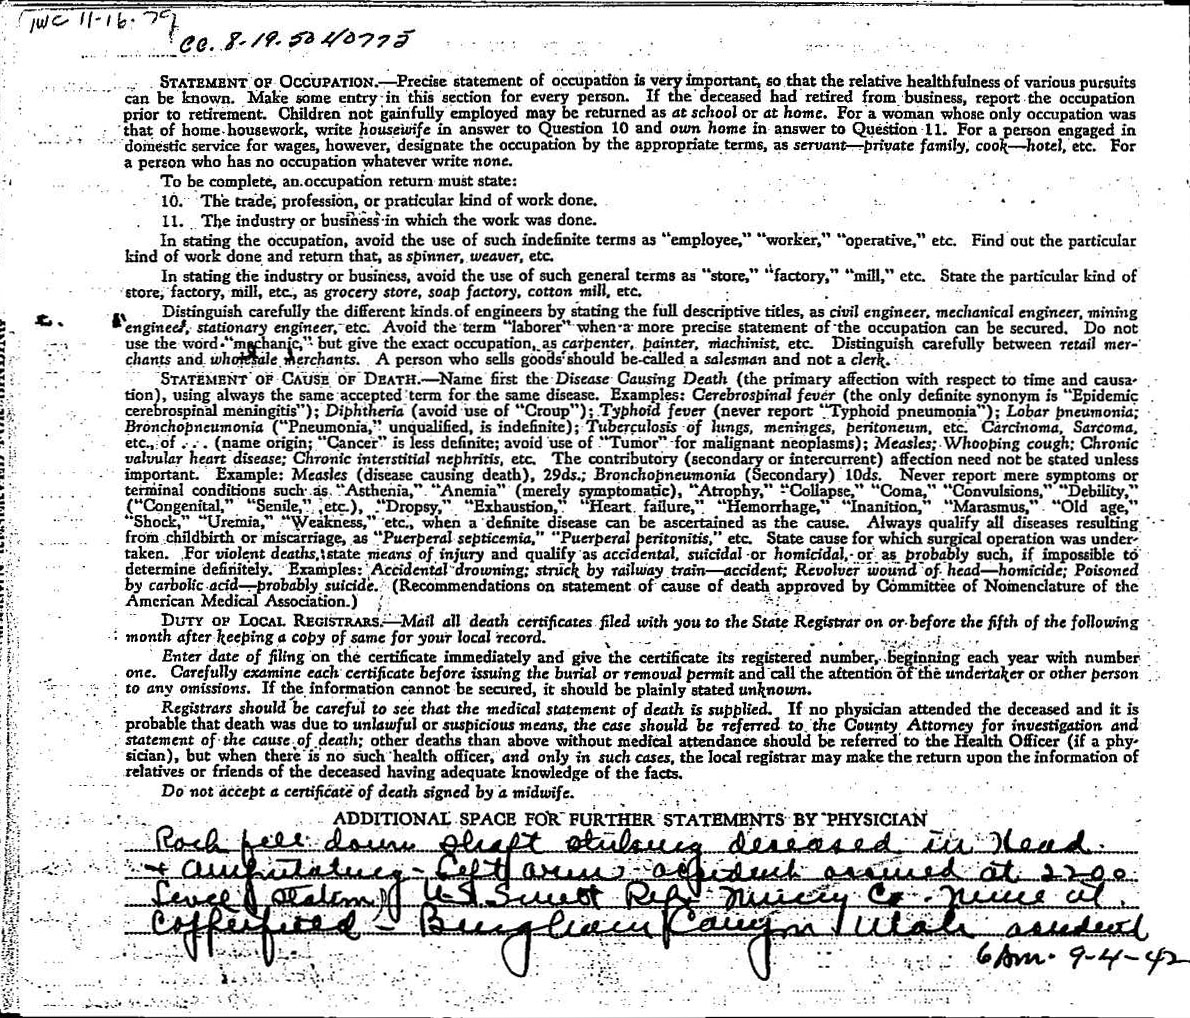 IWC 11-16-79
CC. 8-19-50 40775
STATEMENT OF OCCUPATION.—Precise statement of occupation is very important, so that the relative healthfulness of various pursuits
can be known. Make some entry in this section for every person. If the deceased had retired from business, report the occupation
prior to retirement. Children not gainfully employed may be returned as at school or at home. For a woman whose only occupation was
that of home housework, write housewife in answer to Question 10 and own home in answer to Question 11. For a person engaged in
domestic service for wages, however, designate the occupation by the appropriate terms, as servant—private family, cook—hotel, etc. For
a person who has no occupation whatever write none.
To be complete, an occupation return must state:
10. The trade, profession, or praticular kind of work done.
11. The industry or business in which the work was done.
In stating the occupation, avoid the use of such indefinite terms as “employee,” “worker,” “operative,” etc. Find out the particular
kind of work done and return that, as spinner, weaver, etc.
In stating the industry or business, avoid the use of such general terms as “store,” “factory,” “mill,” etc. State the particular kind of
store, factory, mill, etc., as grocery store, soap factory, cotton mill, etc.
Distinguish carefully the different kinds of engineers by stating the full descriptive titles, as civil engineer, mechanical engineer, mining
engineer, stationary engineer, etc. Avoid the term “laborer” when a more precise statement of the occupation can be secured. Do not
use the word “mechanic,” but give the exact occupation, as carpenter, painter, machinist, etc. Distinguish carefully between retail mer-
chants and wholesale merchants. A person who sells goods should be called a salesman and not a clerk.
STATEMENT OF CAUSE OF DEATH.—Name first the Disease Causing Death (the primary affection with respect to time and causa-
tion), using always the same accepted term for the same disease. Examples: Cerebrospinal fever (the only definite synonym is “Epidemic
cerebrospinal meningitis”); Diphtheria (avoid use of “Croup”); Typhoid fever (never report “Typhoid pneumonia”); Lobar pneumonia;
Bronchopneumonia (“Pneumonia,” unqualified, is indefinite); Tuberculosis of lungs, meninges, peritoneum, etc. Carcinoma, Sarcoma,
etc., of . . . (name origin; “Cancer” is less definite; avoid use of “Tumor” for malignant neoplasms); Measles; Whooping cough; Chronic
valvular heart disease; Chronic interstitial nephritis, etc. The contributory (secondary or intercurrent) affection need not be stated unless
important. Example: Measles (disease causing death), 29ds.; Bronchopneumonia (Secondary) 10ds. Never report mere symptoms or
terminal conditions such as “Asthenia,” “Anemia” (merely symptomatic), “Atrophy,” “Collapse,” “Coma,” “Convulsions,” “Debility,”
(“Congenital,” “Senile,” etc.), “Dropsy,” “Exhaustion,” “Heart failure,” “Hemorrhage,” “Inanition,” “Marasmus,” “Old age,”
“Shock,” “Uremia,” “Weakness,” etc., when a definite disease can be ascertained as the cause. Always qualify all diseases resulting
from childbirth or miscarriage, as “Puerperal septicemia,” “Puerperal peritonitis,” etc. State cause for which surgical operation was under-
taken. For violent deaths, state means of injury and qualify as accidental, suicidal or homicidal, or as probably such, if impossible to
determine definitely. Examples: Accidental drowning; struck by railway train—accident; Revolver wound of head—homicide; Poisoned
by carbolic acid—probably suicide. (Recommendations on statement of cause of death approved by Committee of Nomenclature of the
American Medical Association.)
DUTY OF LOCAL REGISTRARS.—Mail all death certificates filed with you to the State Registrar on or before the fifth of the following
month after keeping a copy of same for your local record.
Enter date of filing on the certificate immediately and give the certificate its registered number, beginning each year with number
one. Carefully examine each certificate before issuing the burial or removal permit and call the attention of the undertaker or other person
to any omissions. If the information cannot be secured, it should be plainly stated unknown.
Registrars should be careful to see that the medical statement of death is supplied. If no physician attended the deceased and it is
probable that death was due to unlawful or suspicious means, the case should be referred to the County Attorney for investigation and
statement of the cause of death; other deaths than above without medical attendance should be referred to the Health Officer (if a phy-
sician), but when there is no such health officer, and only in such cases, the local registrar may make the return upon the information of
relatives or friends of the deceased having adequate knowledge of the facts.
Do not accept a certificate of death signed by a midwife.
ADDITIONAL SPACE FOR FURTHER STATEMENTS BY PHYSICIAN
Rock fell down shaft striking deceased in Head
+ amputating Left arm - accident occured at 2200
Level station of U S Smelt Ref. Mining Co. mine at
Copperfield - Bingham Canyon Utah
6 Am. 9-4-42